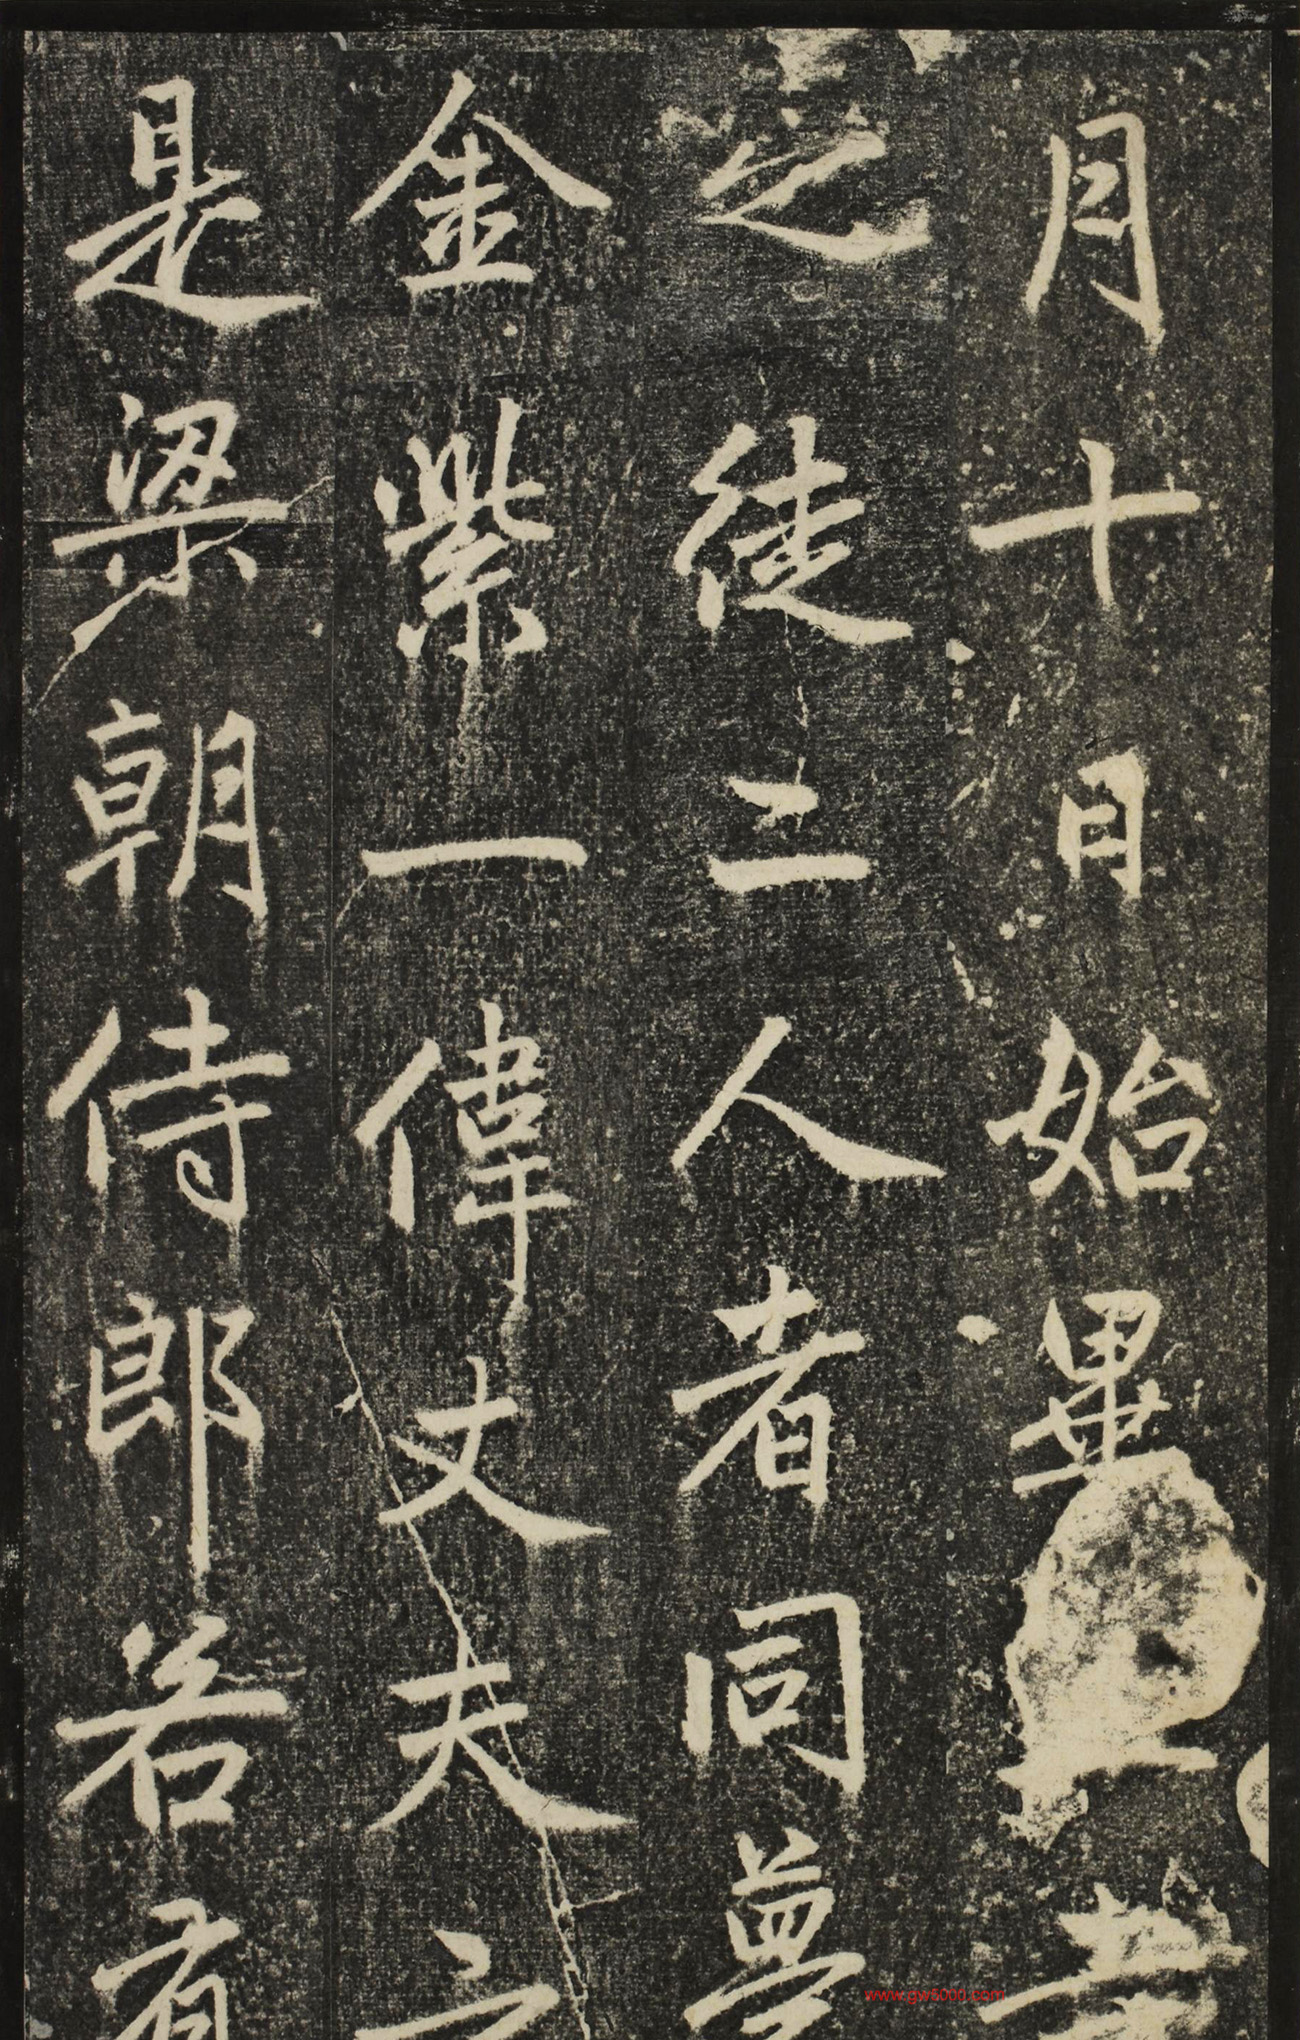 月十日始畢
之徒二人者同夢
金紫一偉丈夫
是梁朝侍郎若有
www.gw5000.com